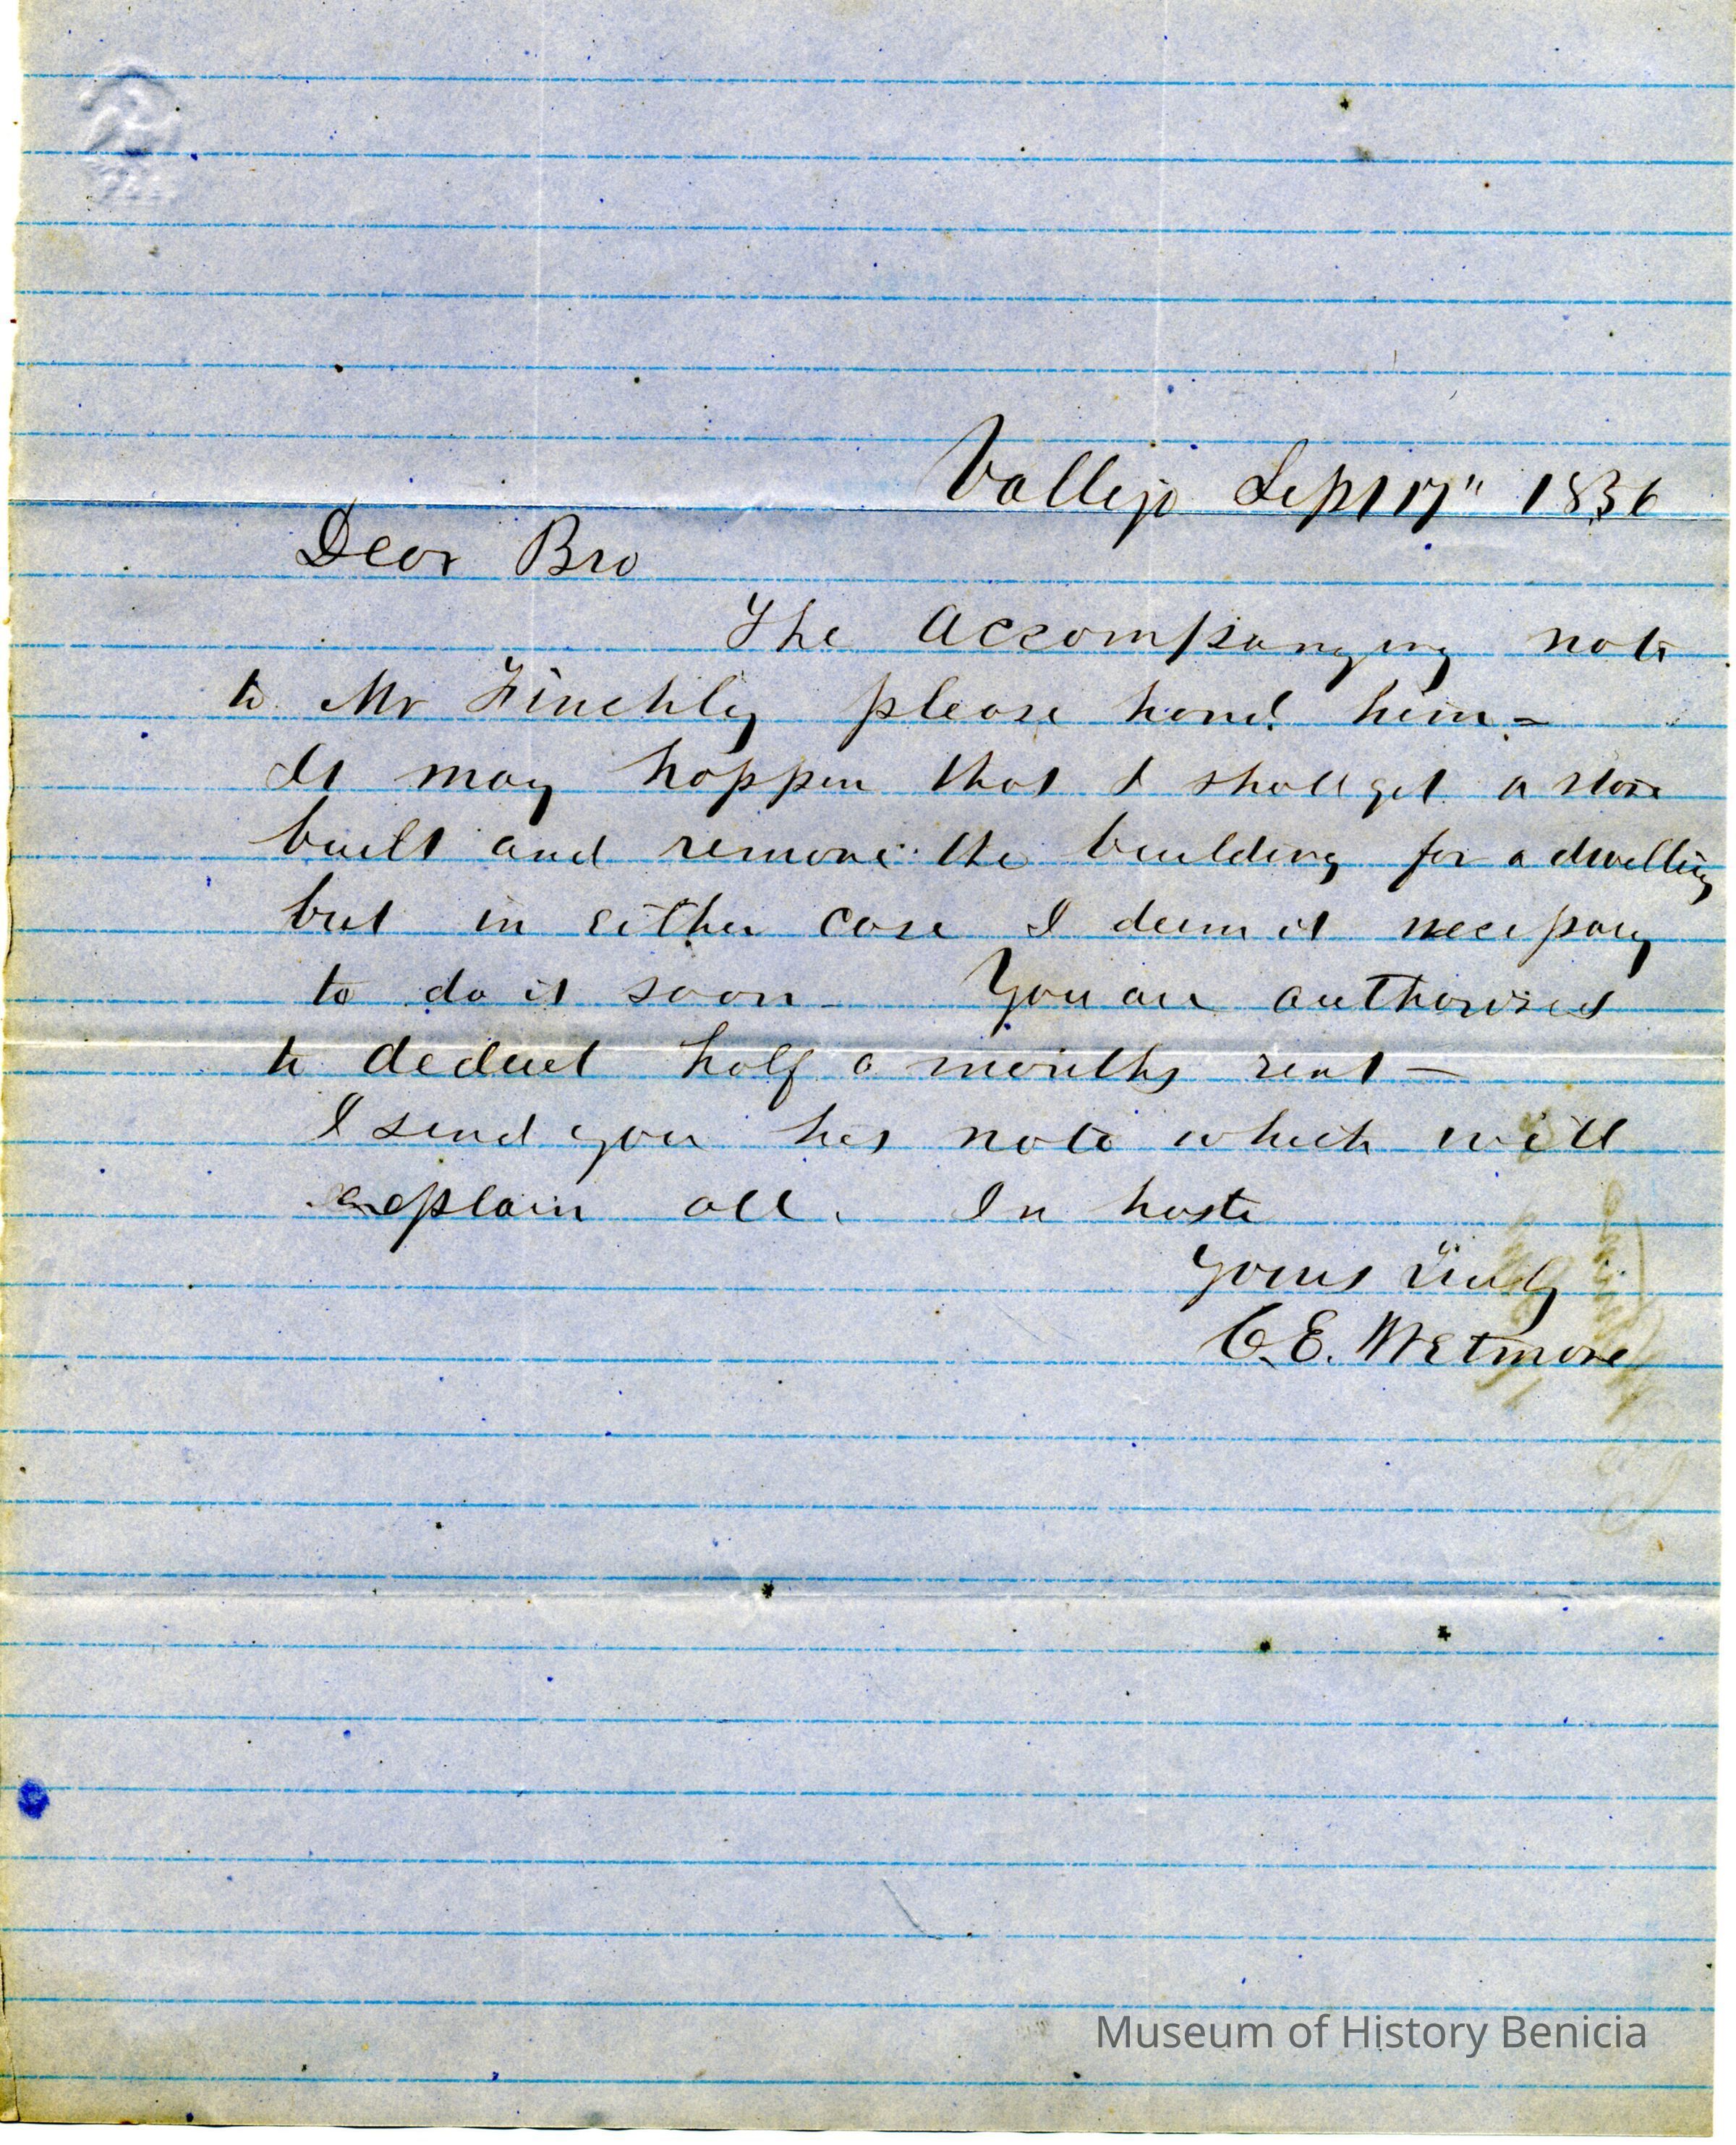 Vallejo Sept 17" 1856
Dear Bro
The Accompanying note
to Mr Finchly please hand him -
It may happen that I shall get a store
built and remove the building for a dwelling
but in either case I deem it necessary
to do it soon - You are authorised
to deduct half a months rent -
I send you his note which will
explain all. In haste
Yours truly
C. E. Wetmore
Museum of History Benicia